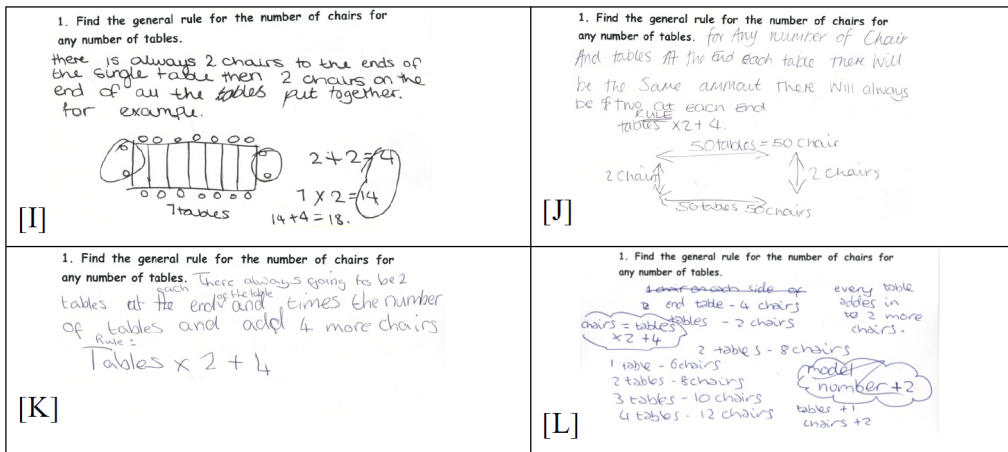 1. Find the general rule for the number of chairs for
any number of tables.
there is always 2 chairs to the ends of
the single table then 2 chairs on the
end of all the tables put together.
for example.
2+2=4
7 x 2=14
7 tables
14+4=18.
[I]
1. Find the general rule for the number of chairs for
any number of tables. for Any number of Chair
And tables At the End each table There Will
be the Same ammaut There Will always
be two at each End
RULE
tables x2+4.
50 tables = 50 chair
2 Chair
2 chairs
50 tables 50 chairs
[J]
1. Find the general rule for the number of chairs for
any number of tables. There always going to be 2
tables at each end of the table and times the number
of tables and add 4 more chairs
Rule:
Tables x 2 + 4
[K]
1. Find the general rule for the number of chairs for
any number of tables.
1 chair on each side of
2 end table - 4 chairs
tables - 2 chairs
every table
addes in
2 more
chairs.
chairs = tables
x2 +4
2 tables - 8 chairs
1 table - 6 chairs
2 tables - 8 chairs
3 tables - 10 chairs
4 tables - 12 chairs
model
number +2
tables +1
chairs +2
[L]